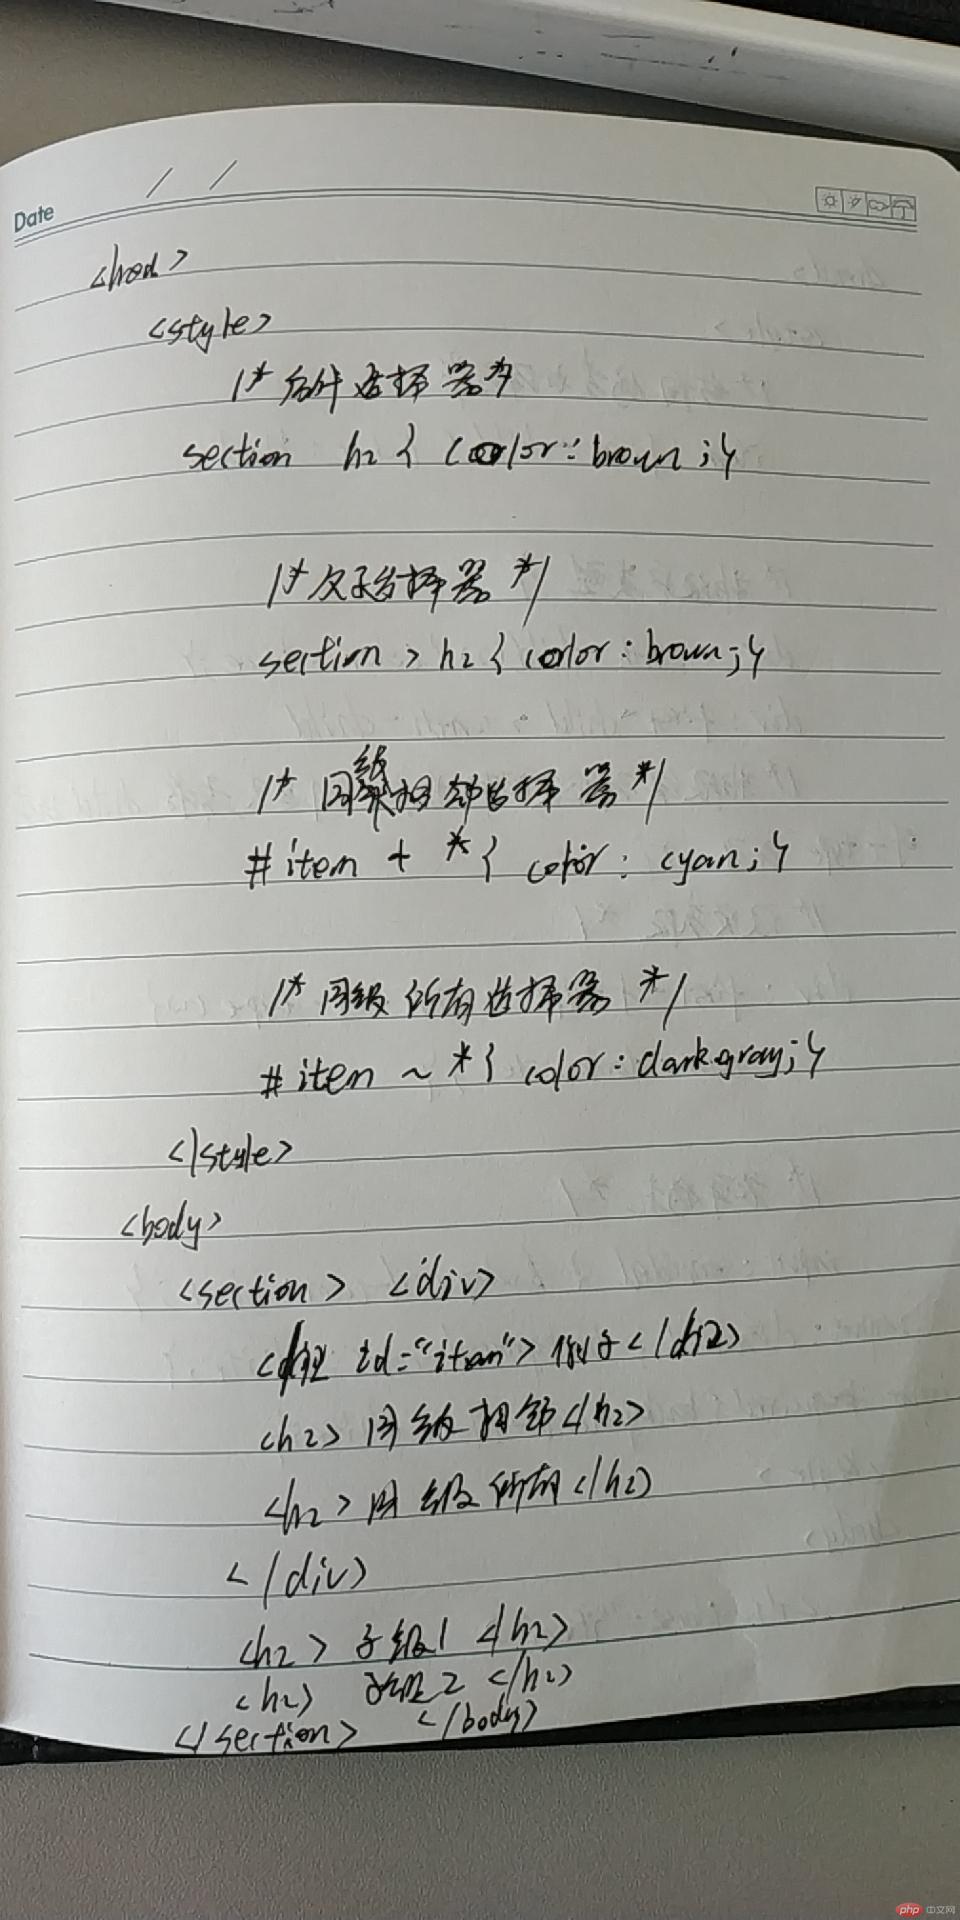 Date / /
<head>
<style>
/* 后代选择器 */
section h2 { color: brown ;}
/* 父子选择器 */
section > h2 { color : brown ;}
/* 同级相邻选择器 */
# item + * { color : cyan ; }
/* 同级所有选择器 */
# item ~ * { color : darkgray ;}
</style>
<body>
<section> <div>
id="item"> 例子 </
<h2> 同级相邻 </h2>
<h2> 同级所有 </h2>
</div>
<h2> 子级1 </h2>
<h2> 子级2 </h2>
</section> </body>
php 中文网